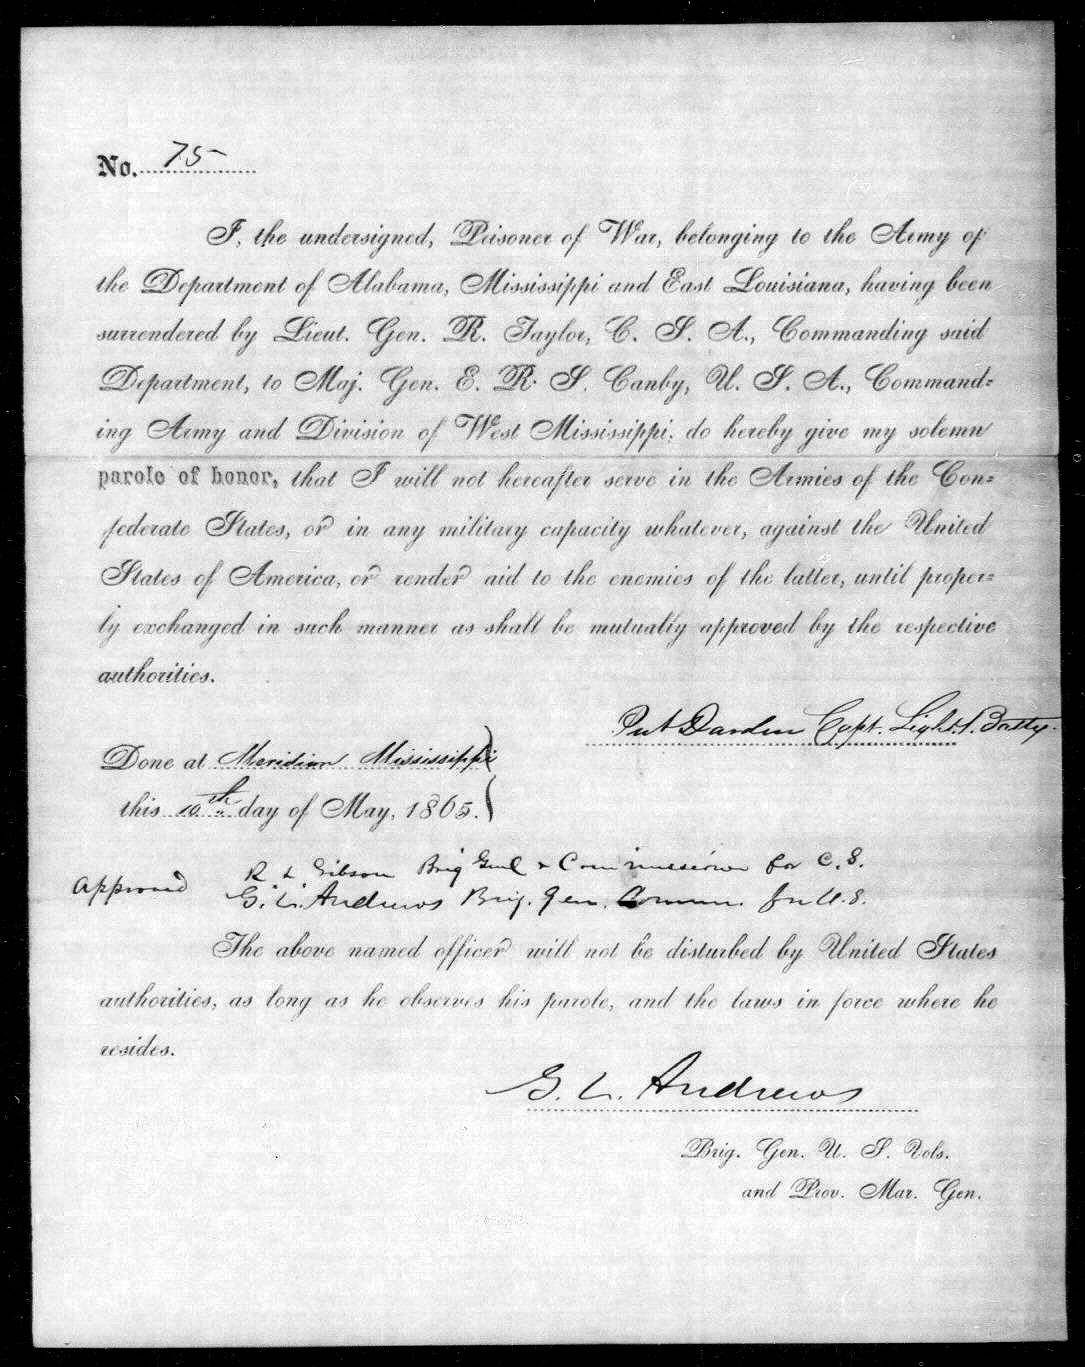 No. 75
I, the undersigned, Prisoner of War, belonging to the Army of
the Department of Alabama, Mississippi and East Louisiana, having been
surrendered by Lieut. Gen. R. Taylor, C. S. A., Commanding said
Department, to Maj. Gen. E. R. S. Canby, U. S. A., Command=
ing Army and Division of West Mississippi, do hereby give my solemn
parole of honor, that I will not hereafter serve in the Armies of the Con=
federate States, or in any military capacity whatever, against the United
States of America, or render aid to the enemies of the latter, until proper=
ly exchanged in such manner as shall be mutually approved by the respective
authorities.
Put Darden Capt. Light. Batty.
Done at Meridian Mississippi
this 10th day of May, 1865.
R L Gibson Brig Genl & Commissioner for C.S.
Approved G. L. Andrews Brig. Gen. Comm. for U.S.
The above named officer will not be disturbed by United States
authorities, as long as he observes his parole, and the laws in force where he
resides.
G. L. Andrews
Brig. Gen. U. S. Vols.
and Prov. Mar. Gen.